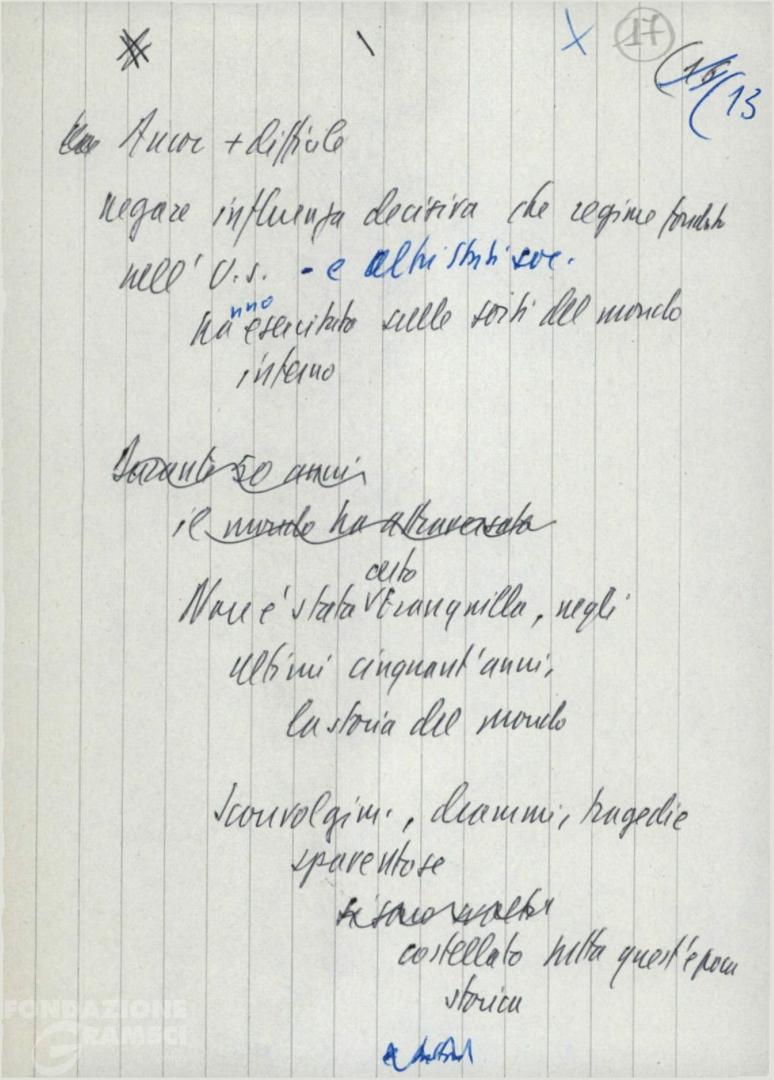 17
(16 (13
Ancor + difficile
negare influenza decisiva che regime fondato
nell' U.S. - e altri stati soc.
hanno esercitato sulle sorti del mondo
intero
Durante 50 anni
il mondo ha attraversato
Non è stata certo tranquilla, negli
ultimi cinquant'anni,
la storia del mondo
Sconvolgim., drammi, tragedie
spaventose
si sono
costellato tutta quest'epoca
storica
FONDAZIONE
GRAMSCI